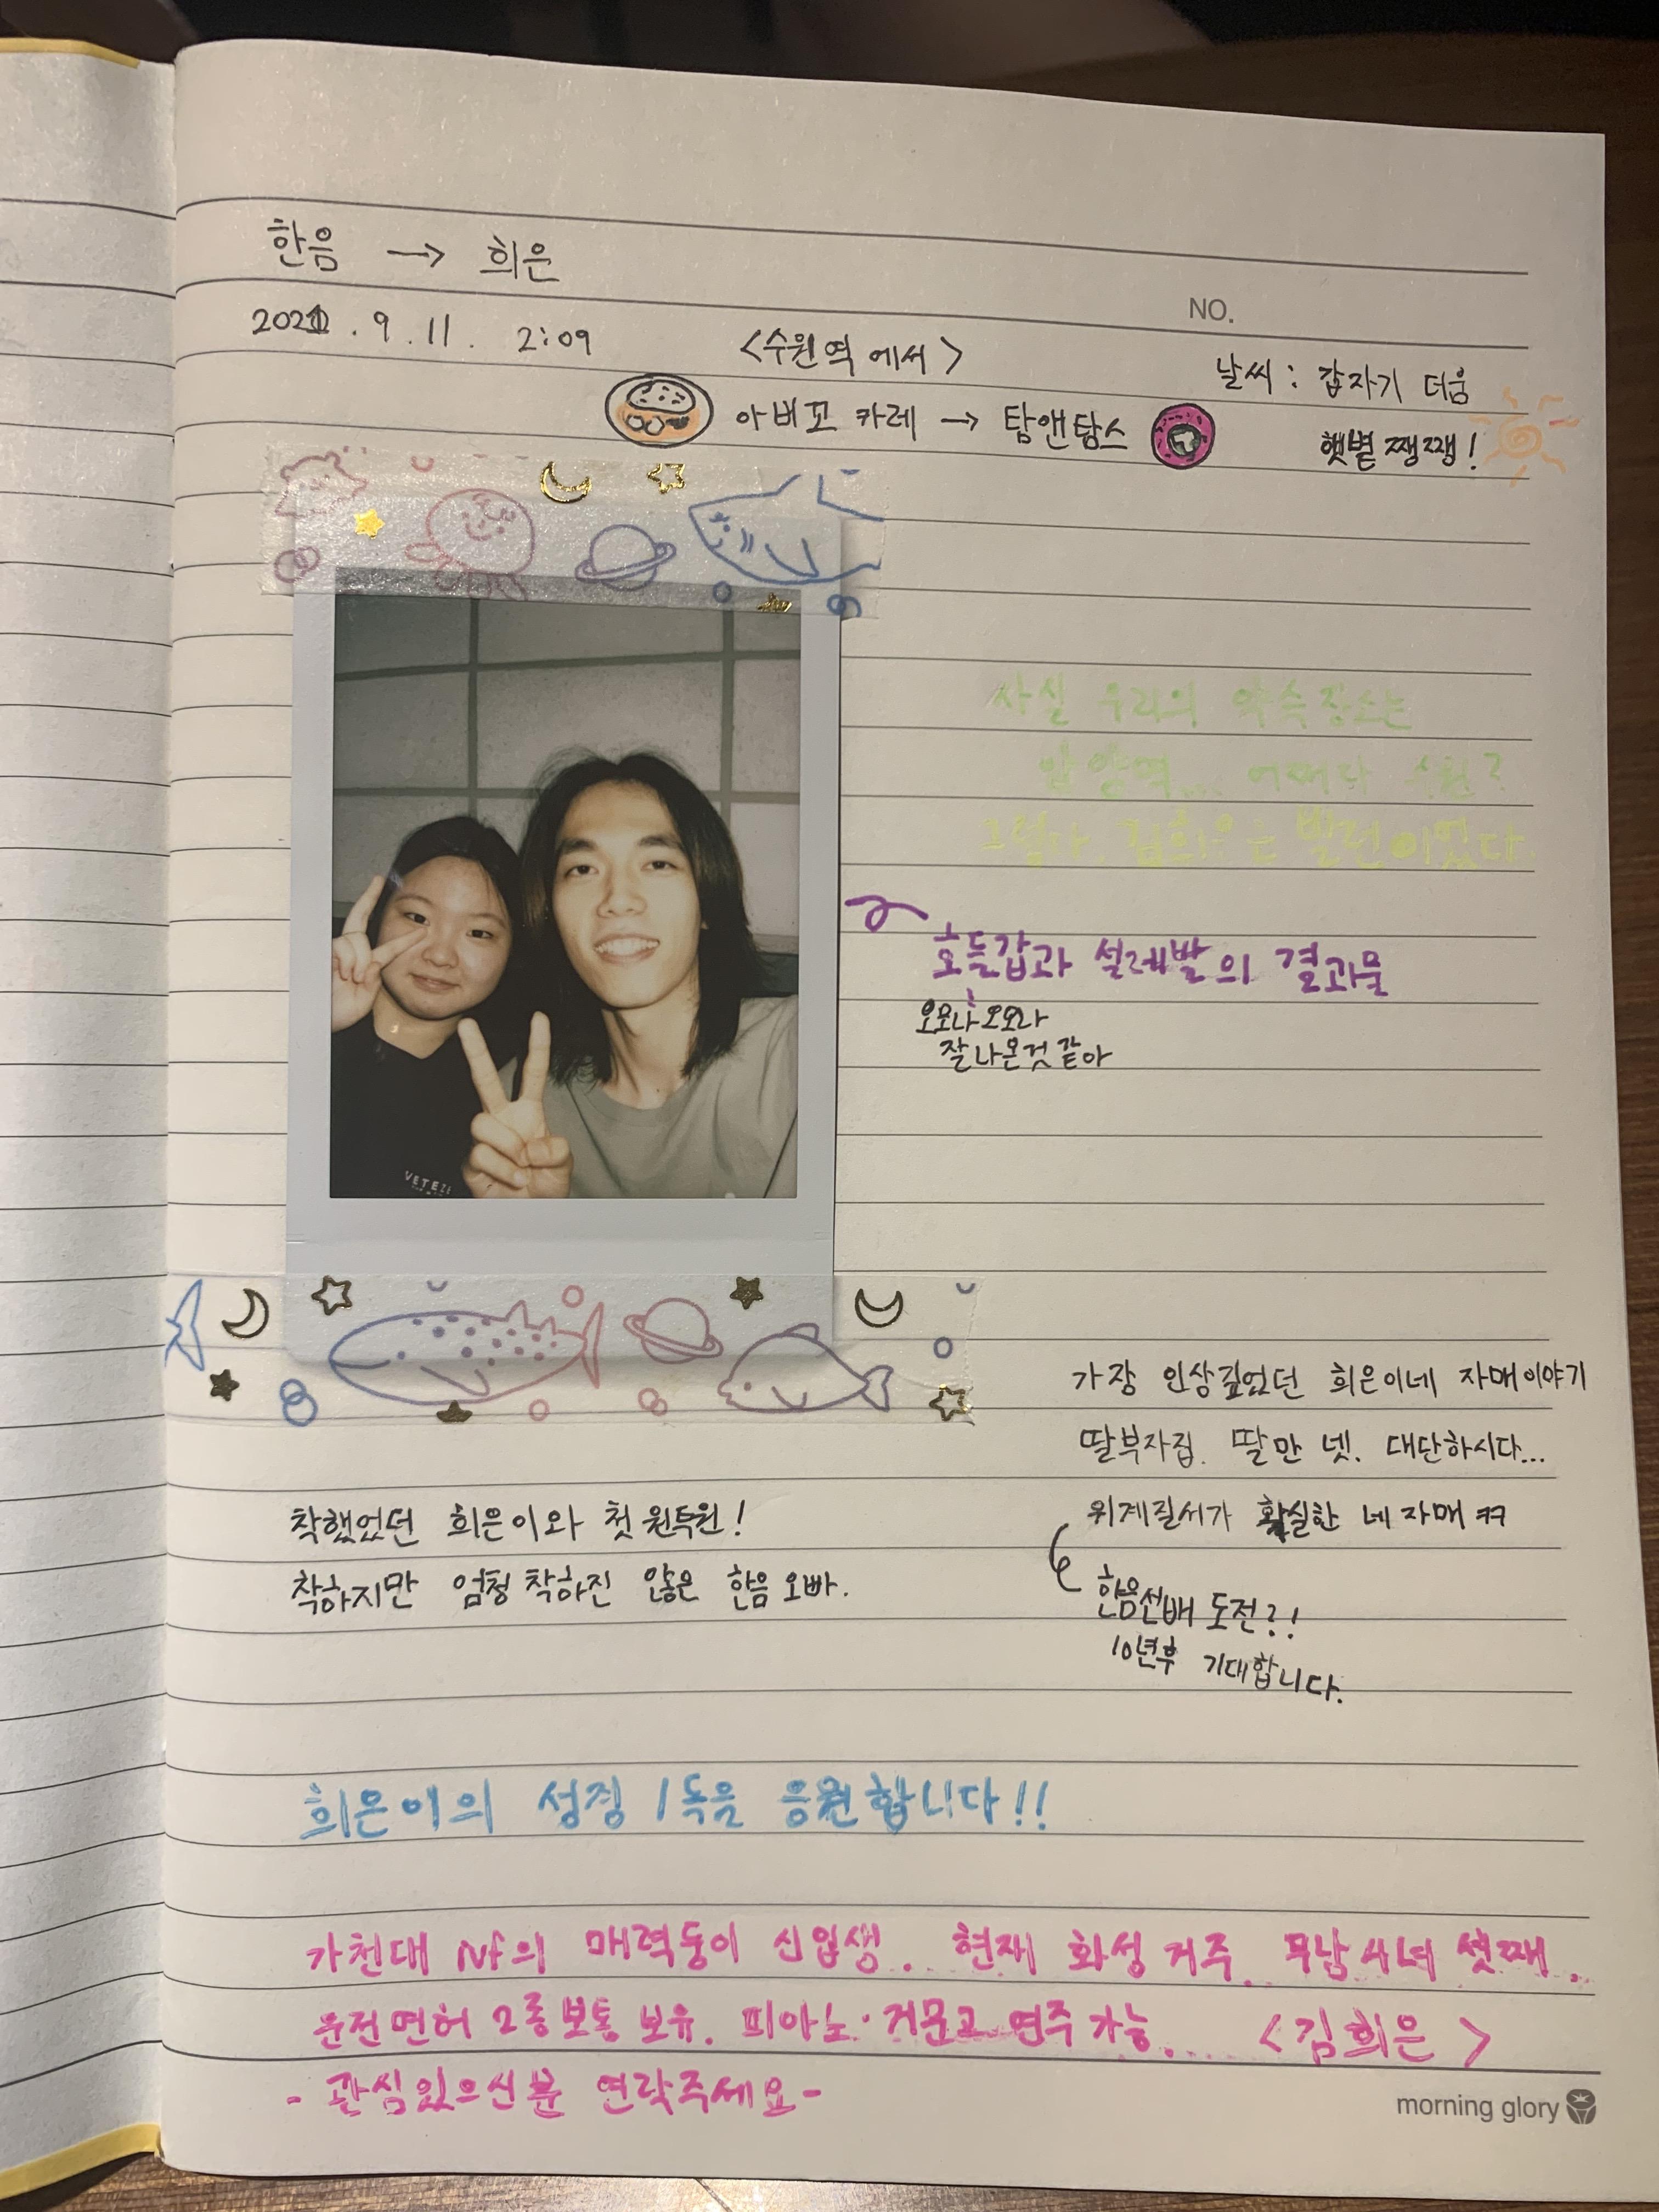 한음 → 희은
NO.
2022 . 9 . 11 . 2:09
<수원역에서>
날씨 : 갑자기 더움
아비꼬 카레 → 탐앤탐스
햇볕 쨍쨍!
사실 우리의 약속장소는
어쩌다 수원?
그렇다. 김희은은 발견이었다.
호들갑과 설레발의 결과물
오모나 오모나
잘 나온것 같아
VETEZE
가장 인상깊었던 희은이네 자매이야기
딸부자집. 딸만 넷. 대단하시다...
위계질서가 확실한 네 자매 ㅋㅋ
한음선배 도전?!
10년후 기대합니다.
착했었던 희은이와 첫 원투원!
착하지만 엄청 착하진 않은 한음 오빠.
희은이의 성경 1독을 응원합니다!!
가천대 IVF의 매력둥이 신입생. 현재 화성 거주. 무남사녀 셋째.
운전면허 2종보통 보유. 피아노·거문고 연주 가능. <김희은>
- 관심있으신분 연락주세요-
morning glory